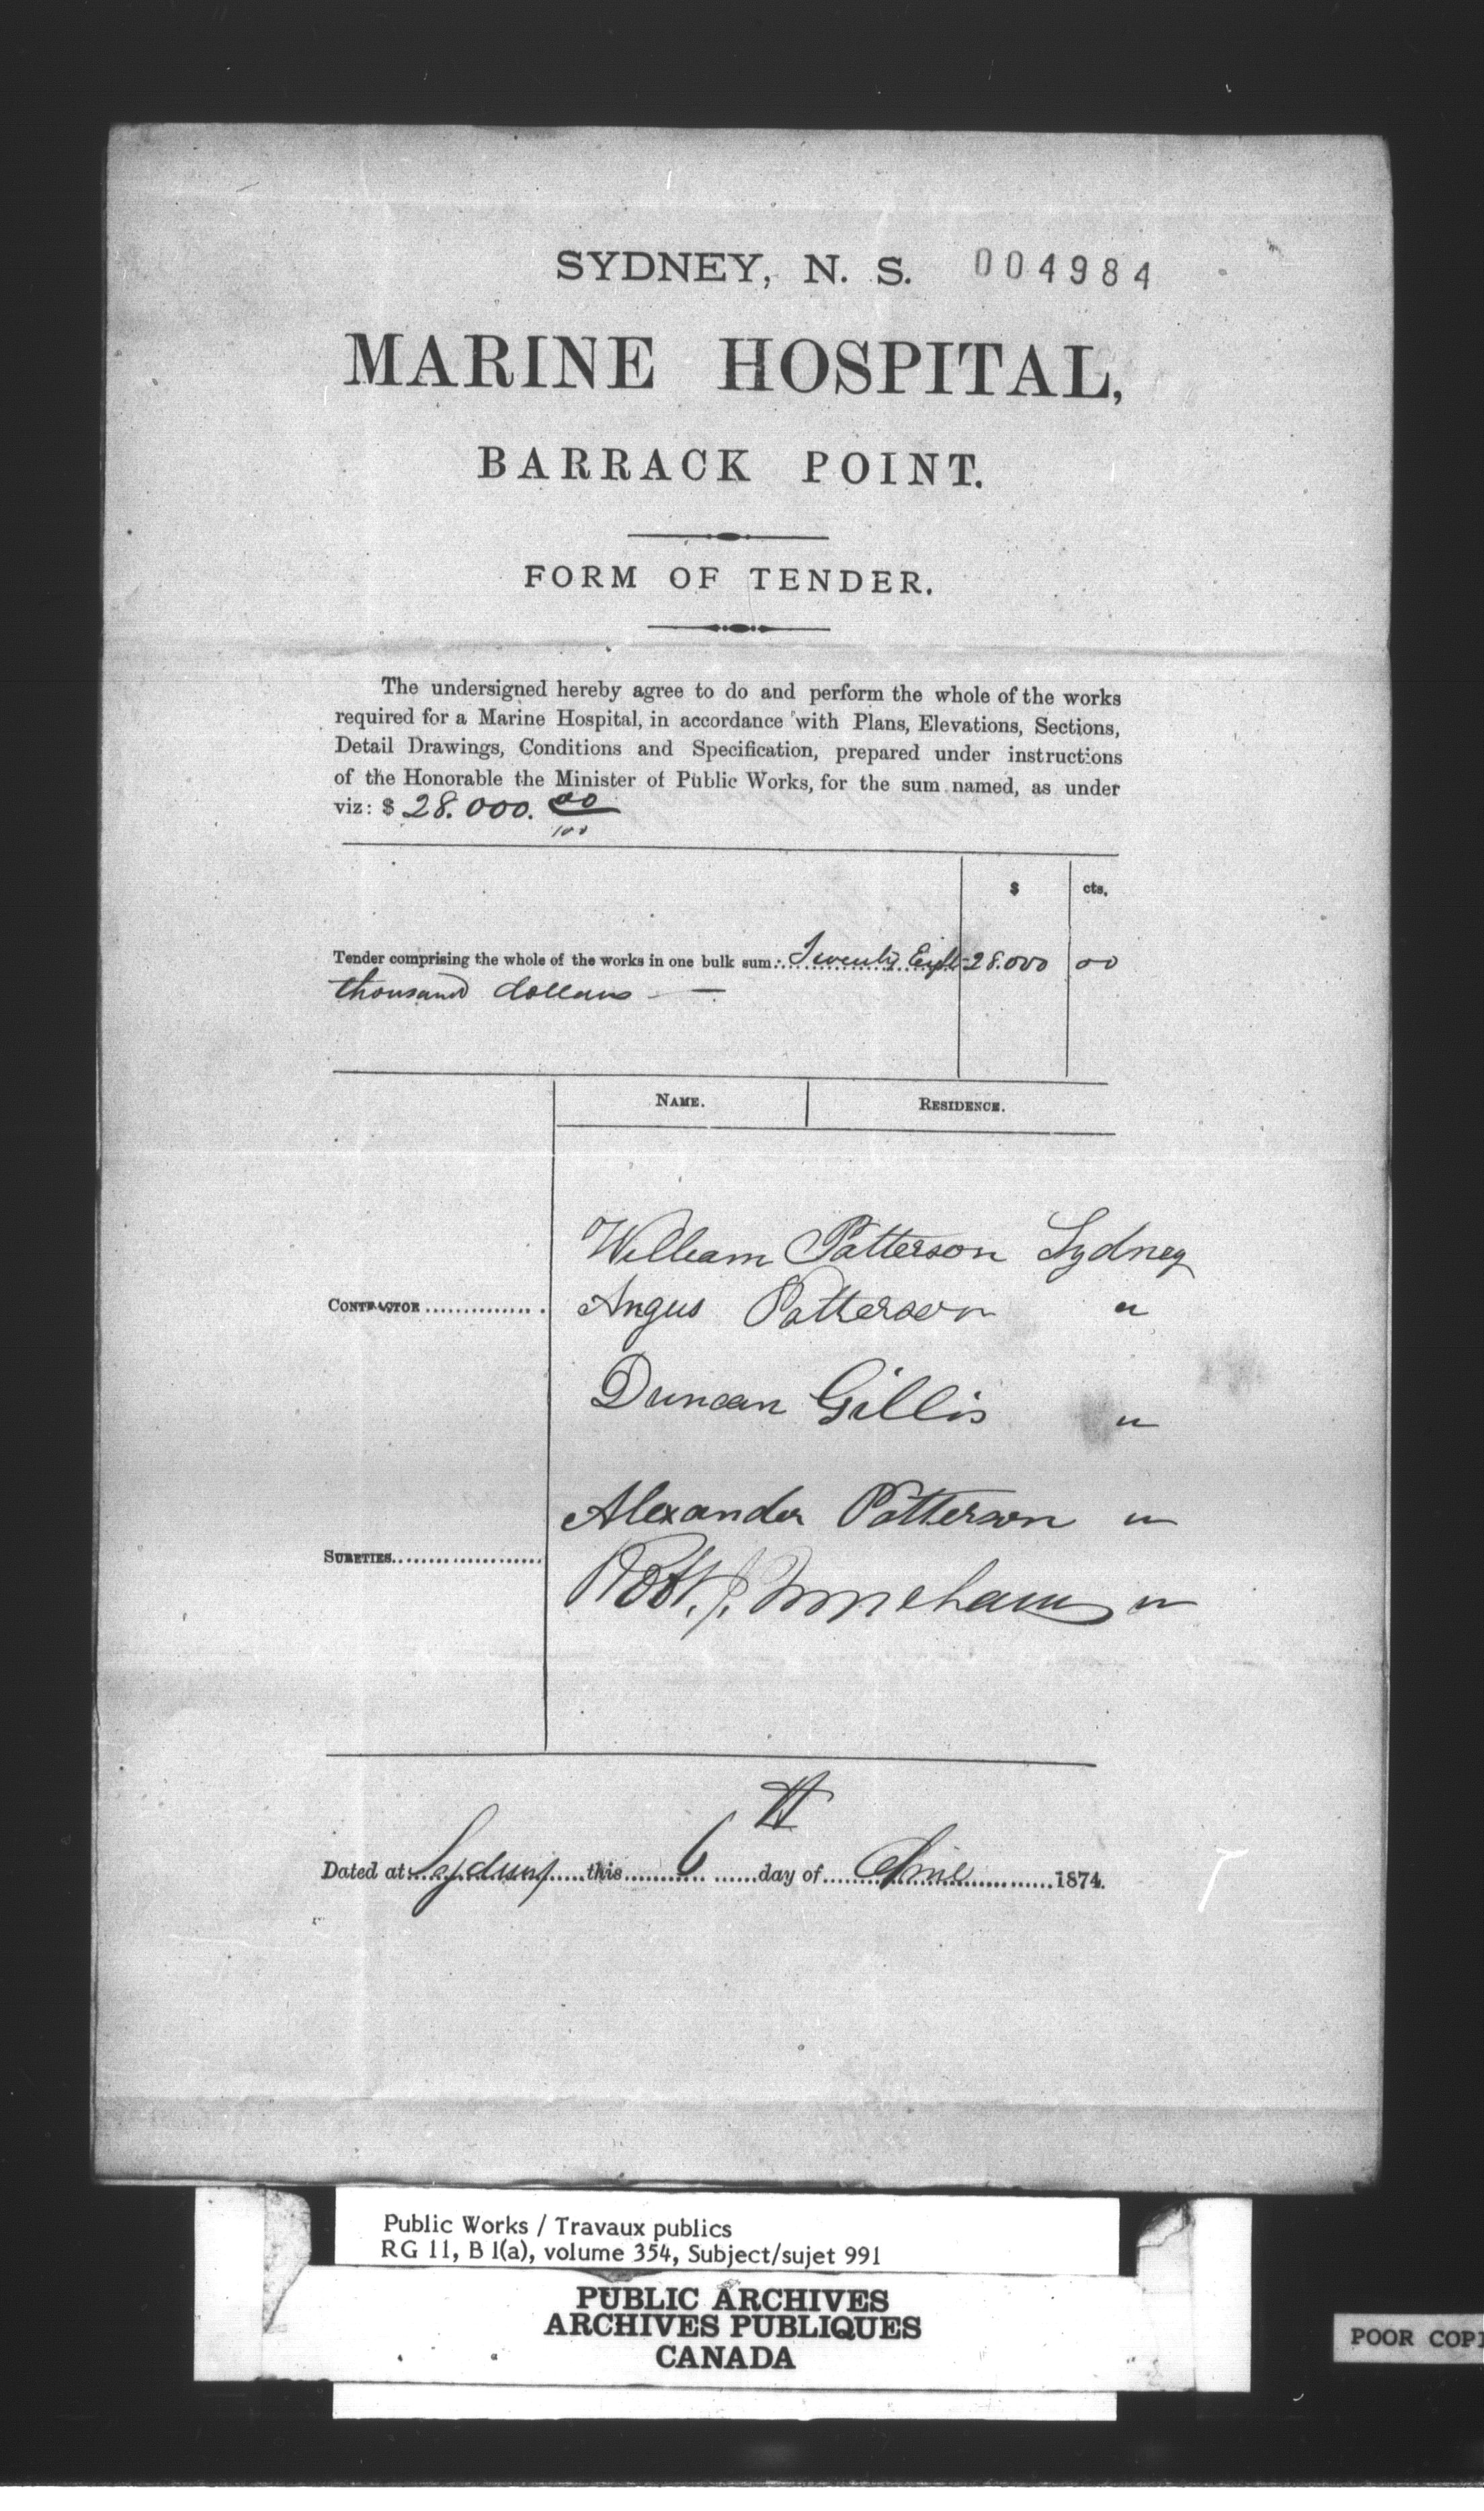 SYDNEY, N. S. 004984
MARINE HOSPITAL,
BARRACK POINT.
FORM OF TENDER.
The undersigned hereby agree to do and perform the whole of the works
required for a Marine Hospital, in accordance with Plans, Elevations, Sections,
Detail Drawings, Conditions and Specification, prepared under instructions
of the Honorable the Minister of Public Works, for the sum named, as under
viz: $ 28.000. 00/100
$ cts.
Tender comprising the whole of the works in one bulk sum: Twenty Eight 28.000 00
thousand dollars —
NAME. RESIDENCE.
William Patterson Sydney
CONTRACTOR Angus Patterson "
Duncan Gillis "
Alexander Patterson "
SURETIES Robt. "
Dated at Sydney this 6th day of 1874.
Public Works / Travaux publics
RG 11, B 1(a), volume 354, Subject/sujet 991
PUBLIC ARCHIVES
ARCHIVES PUBLIQUES
CANADA
POOR COPI